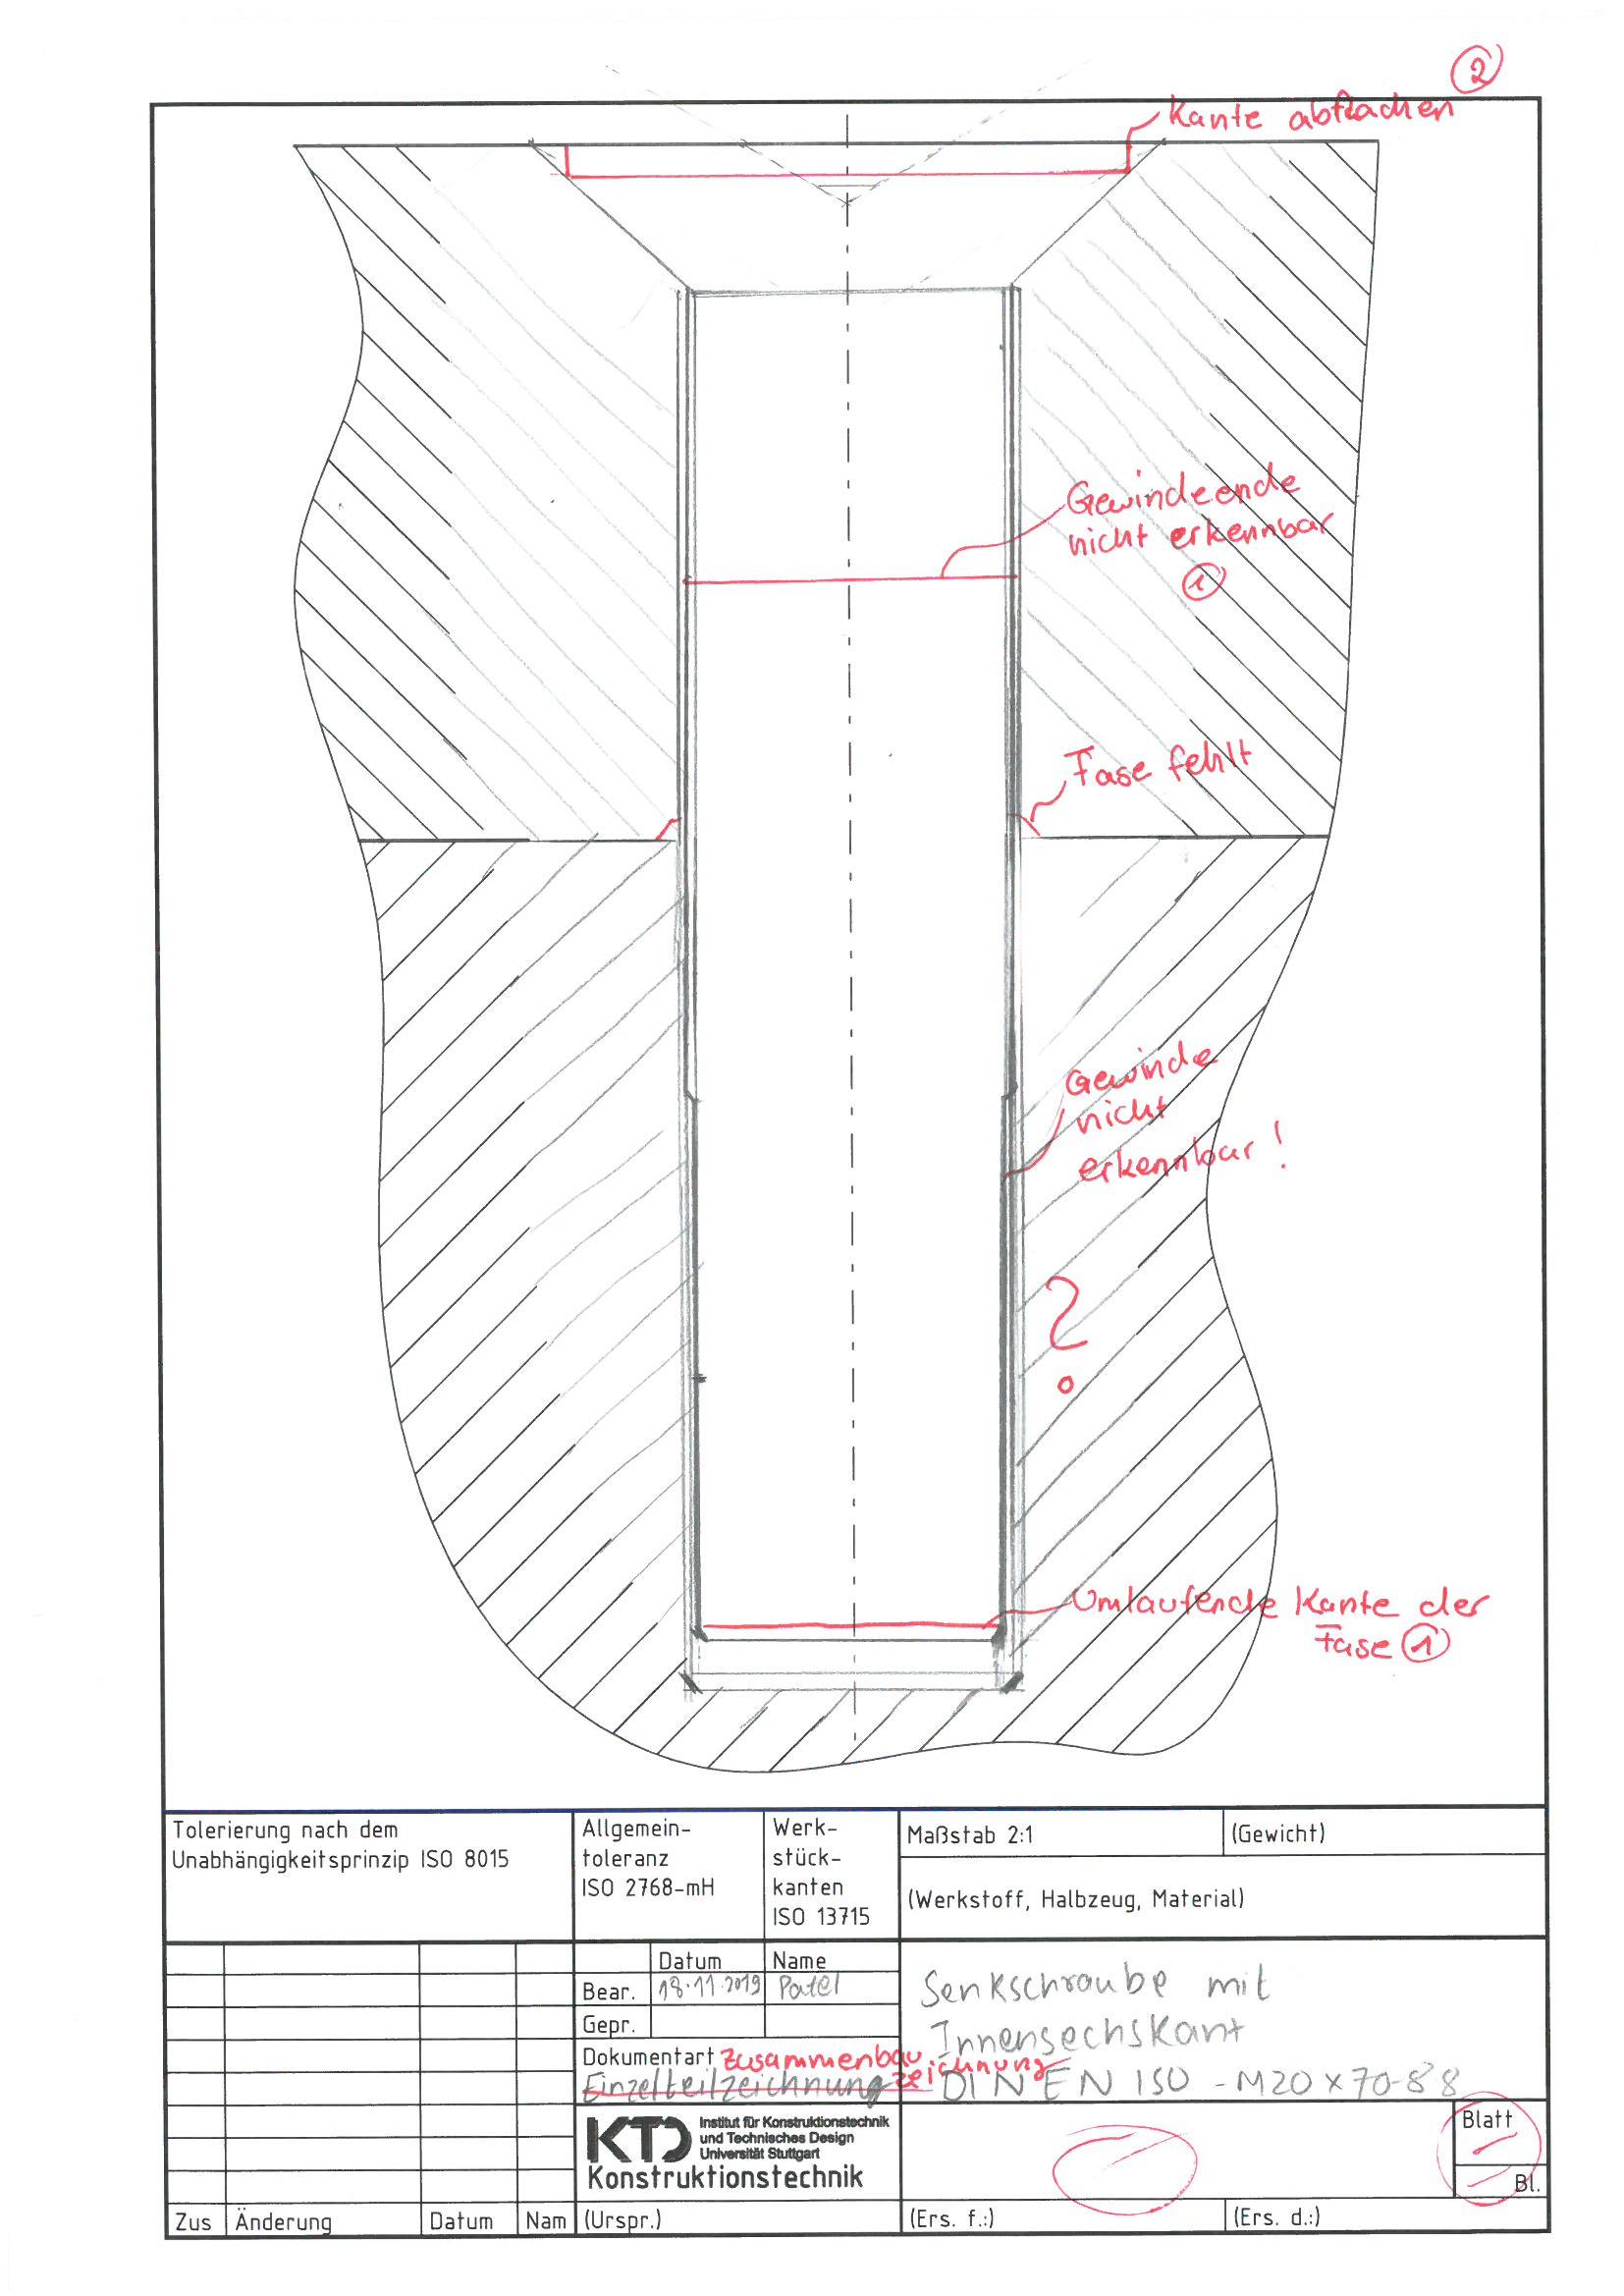 2
Kante abflachen
Gewindeende
nicht erkennbar
1
Fase fehlt
Gewinde
nicht
erkennbar!
?
Umlaufende Kante der
Fase 1
Tolerierung nach dem
Unabhängigkeitsprinzip ISO 8015
Allgemein-
toleranz
ISO 2768-mH
Werk-
stück-
kanten
ISO 13715
Maßstab 2:1
(Gewicht)
(Werkstoff, Halbzeug, Material)
Datum
Name
Bear.
18.11.2019
Patel
Gepr.
Senkschraube mit
Innensechskant
DIN EN ISO - M20 x 70-88
Dokumentart
Zusammenbau
zeichnung
Einzelteilzeichnung
KTD
Institut für Konstruktionstechnik
und Technisches Design
Universität Stuttgart
Konstruktionstechnik
Blatt
Bl.
Zus
Änderung
Datum
Nam
(Urspr.)
(Ers. f.:)
(Ers. d.:)